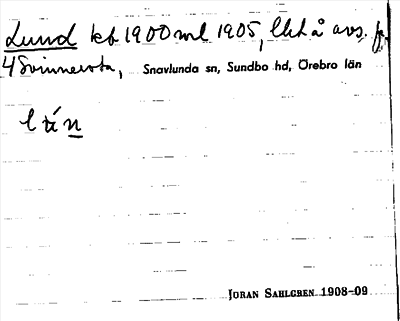 Lund kb 1900 ml 1905, lht å avs. fr.
4 Svinnersta, Snavlunda sn, Sundbo hd, Örebro län
JÖRAN SAHLGREN 1908-09